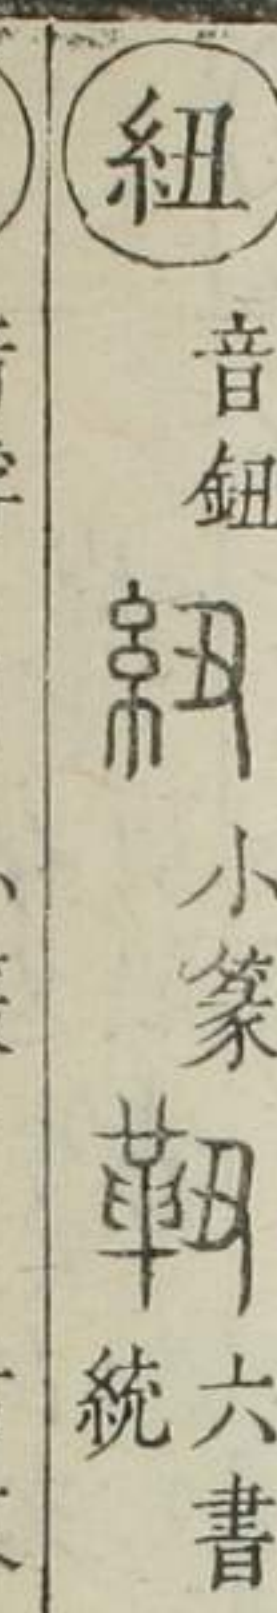 紐
音鈕
紐
小篆
䩗
六書
統